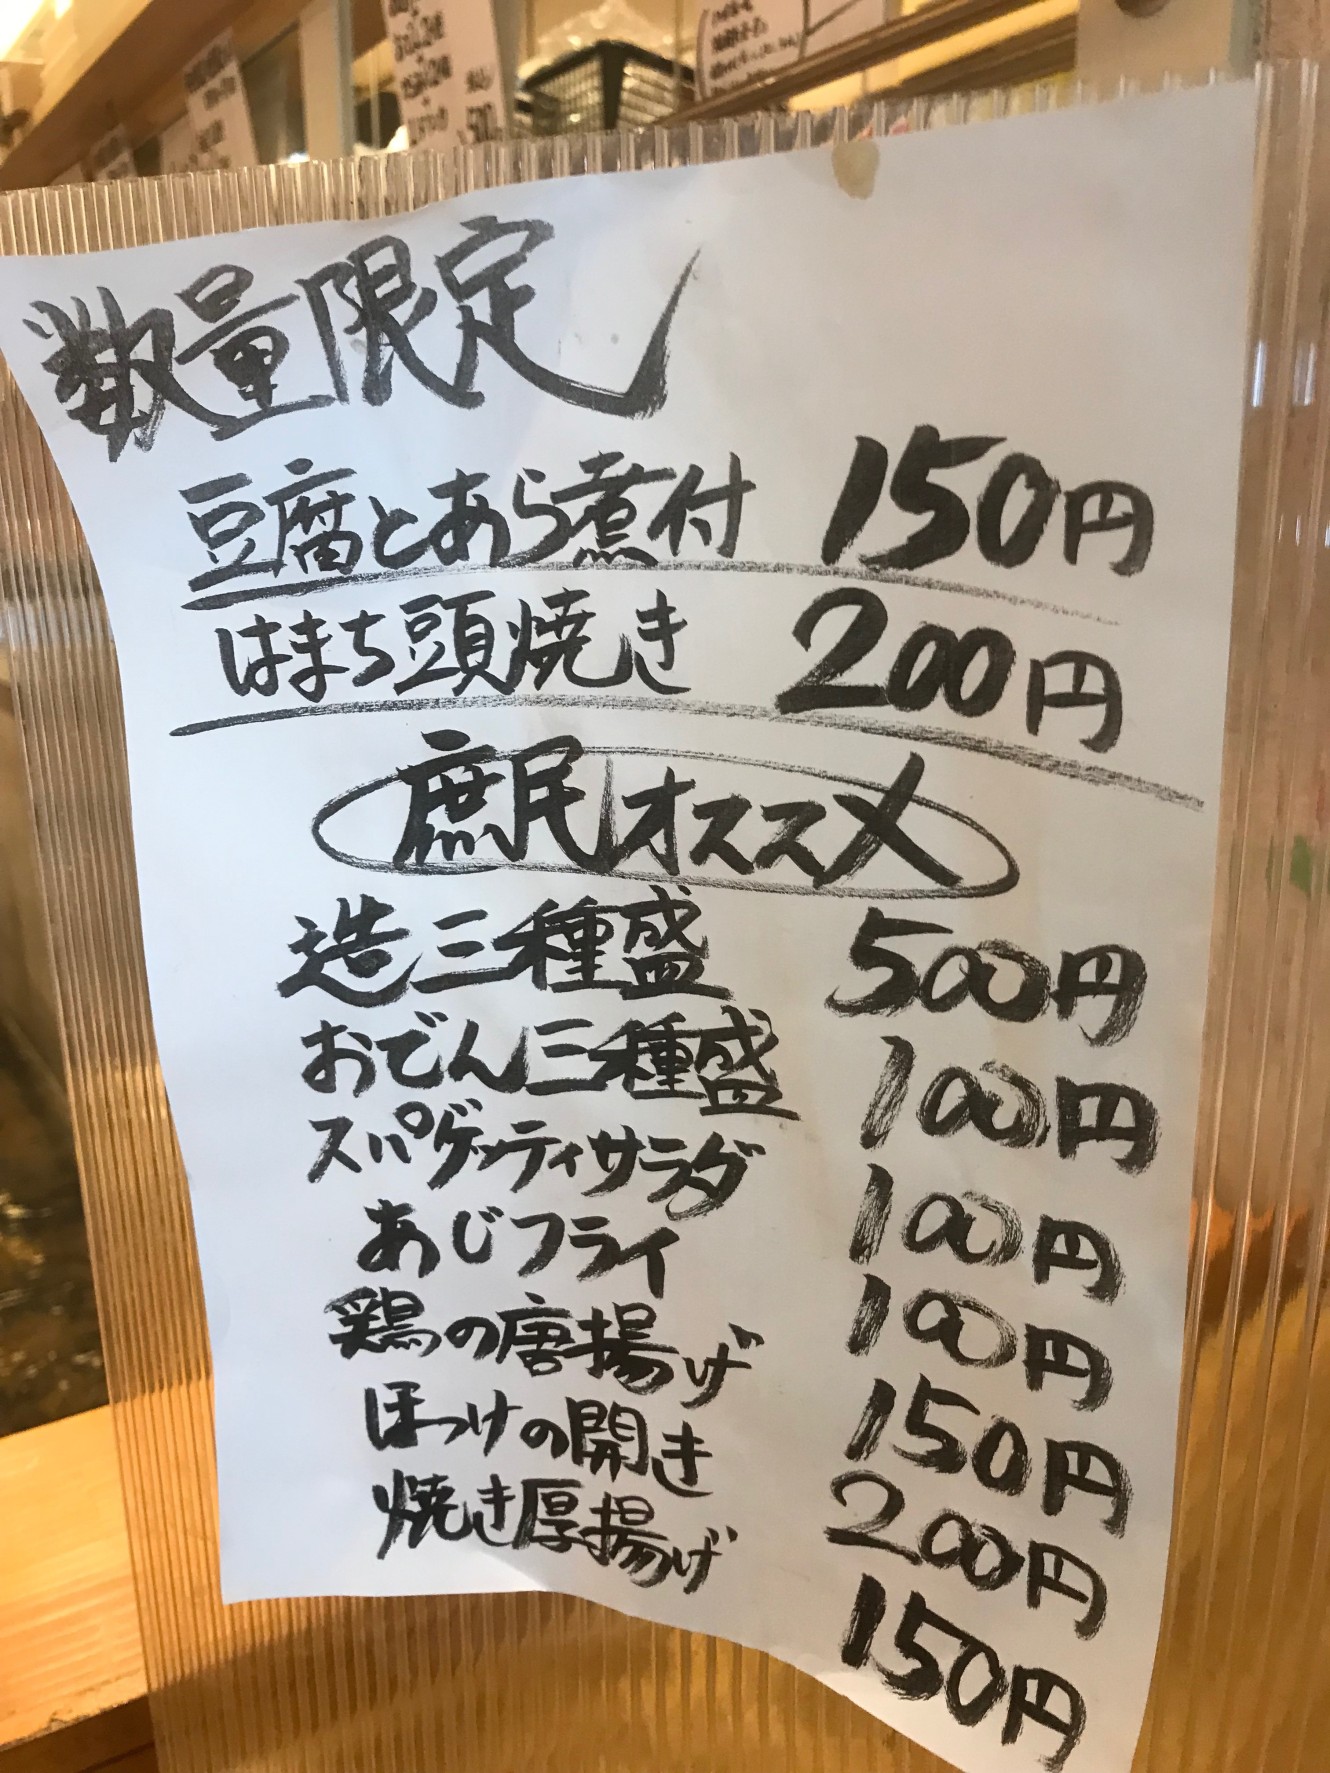 数量限定
豆腐とあら煮付 150円
はまち頭焼き 200円
庶民オススメ
造三種盛 500円
おでん三種盛 100円
スパゲッティサラダ 100円
あじフライ 100円
鶏の唐揚げ 150円
ほっけの開き 200円
焼き厚揚げ 150円